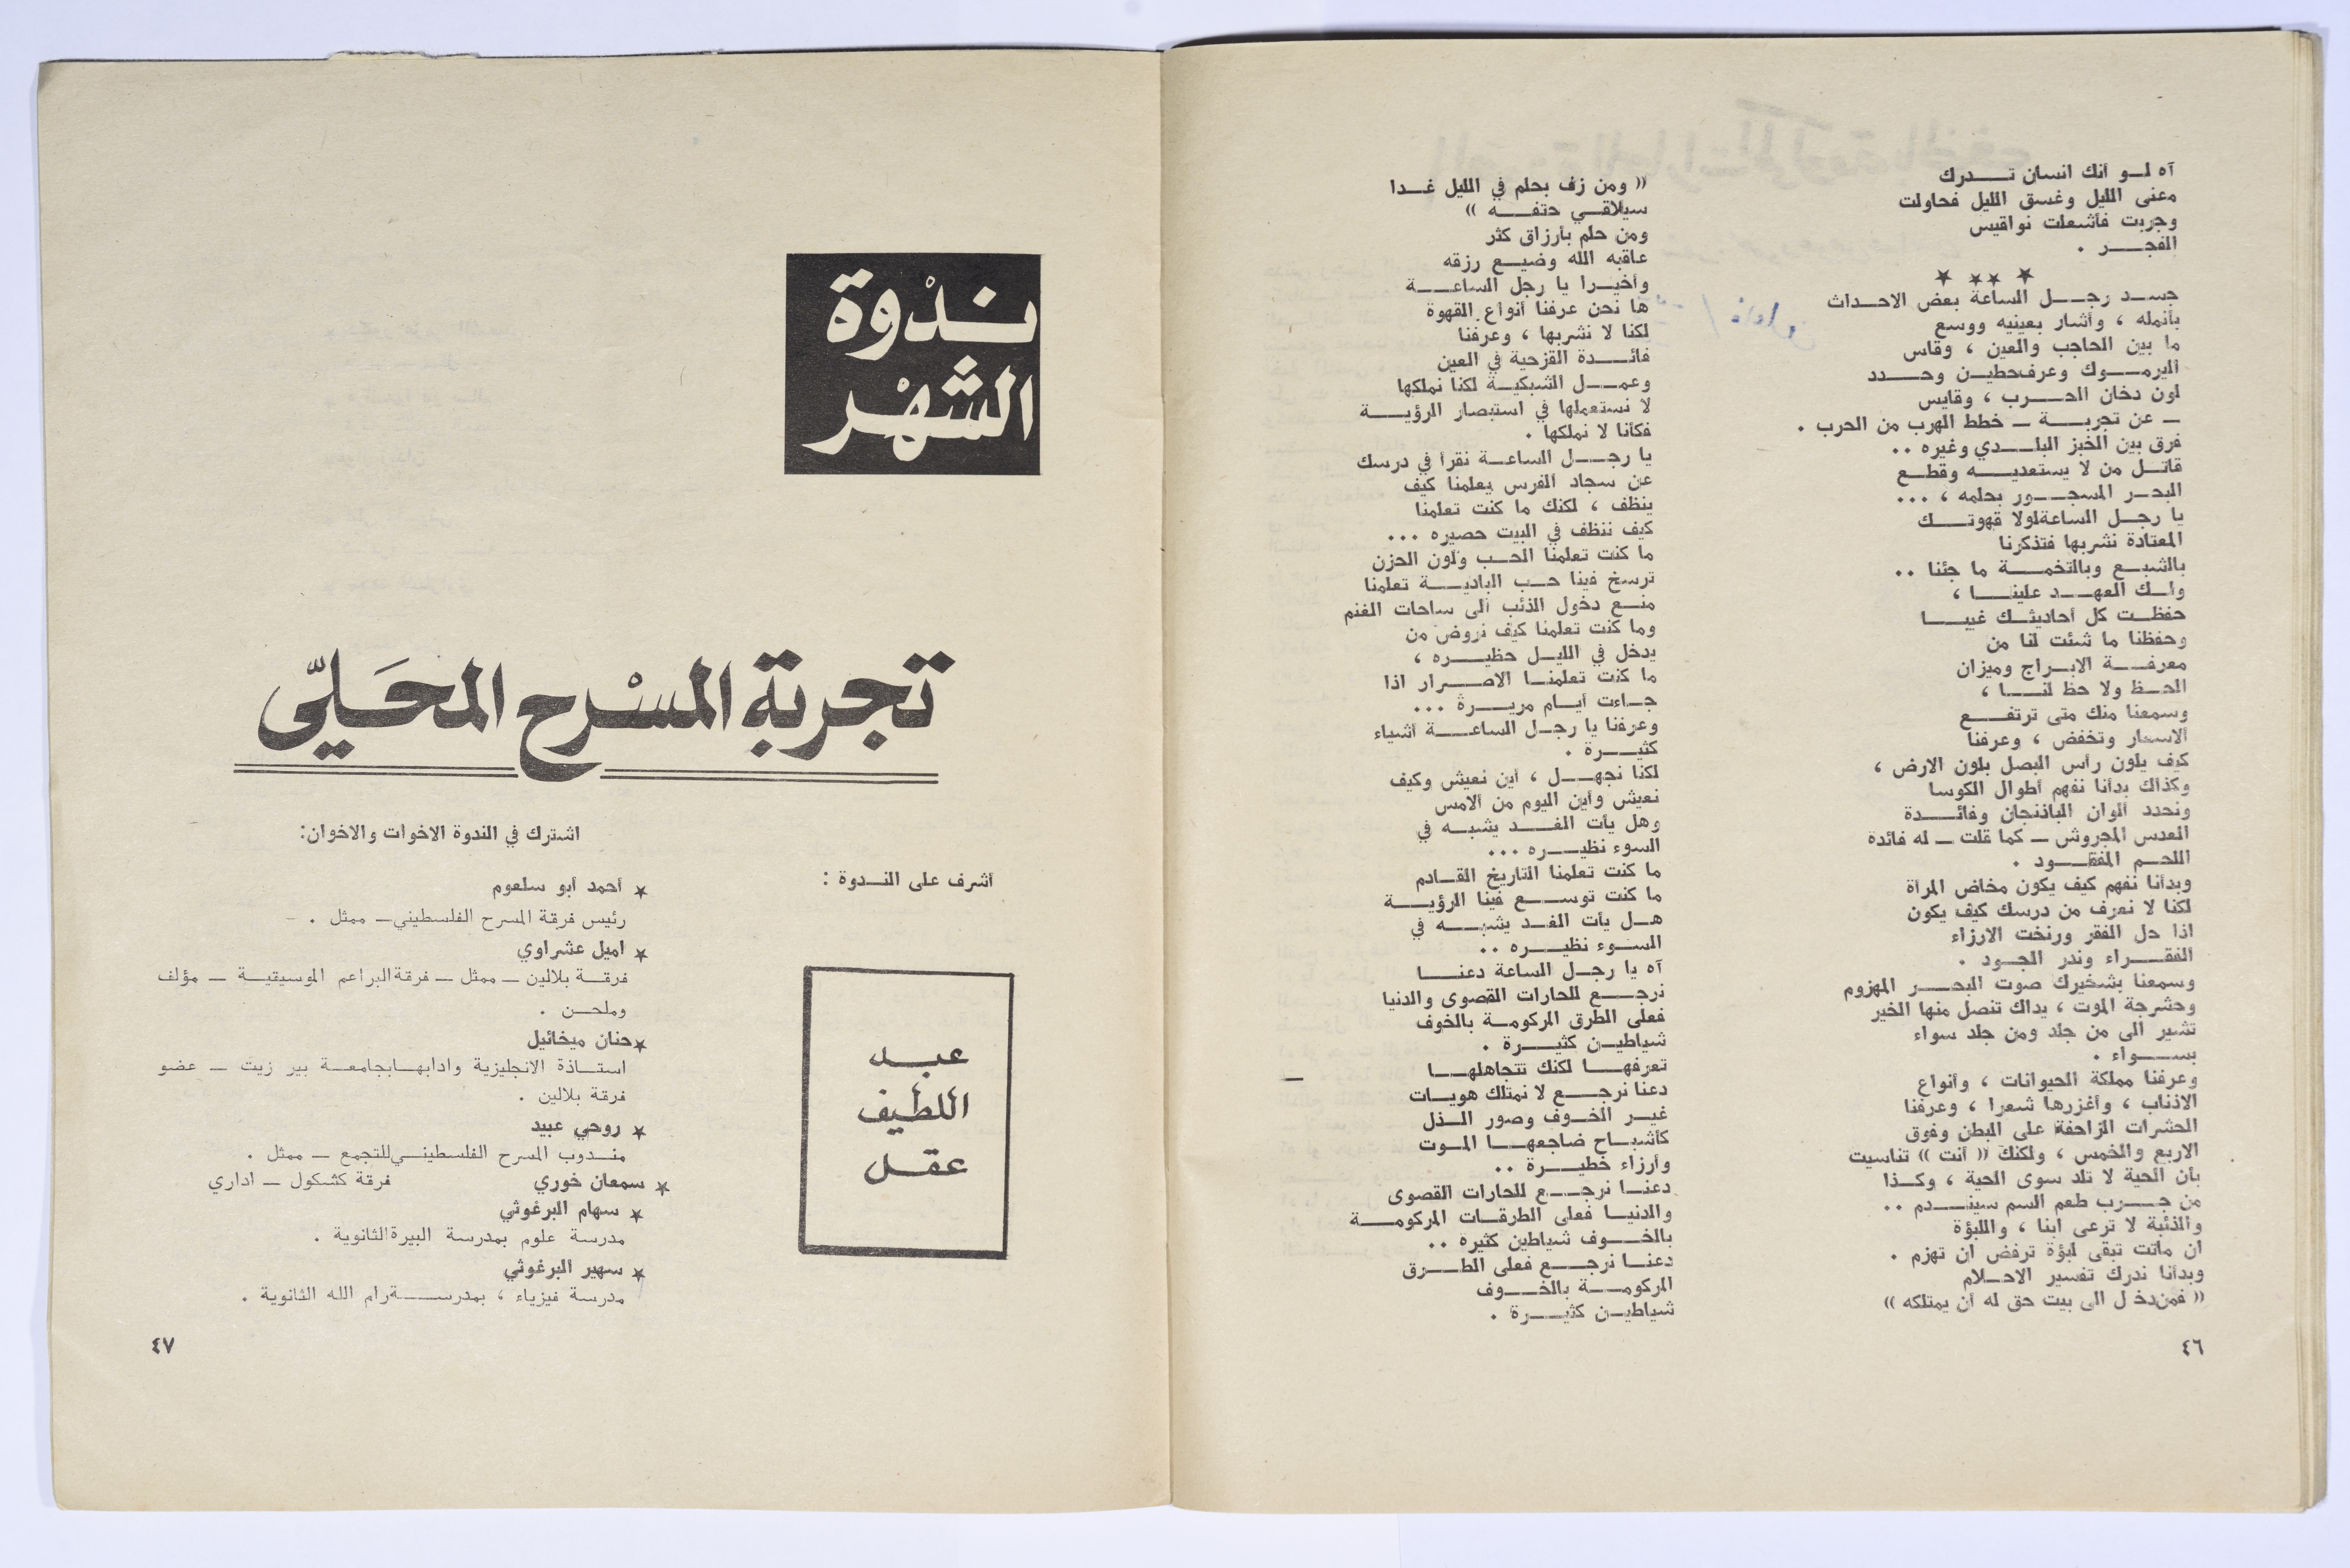 آه لو أنك انسان تدرك
معنى الليل وغسق الليل فحاولت
وجربت فأشعلت نواقيس
الفجر .
★ ★★ ★
جسد رجل الساعة بعض الاحداث
بأنمله ، وأشار بعينيه ووسع
ما بين الحاجب والعين ، وقاس
اليرموك وعرف حطين وحدد
لون دخان الحرب ، وقايس
— عن تجربة — خطط الهرب من الحرب .
فرق بين الخبز البلدي وغيره ..
قاتل من لا يستعديه وقطع
البحر المسجور بحلمه ، ...
يا رجل الساعة لولا قهوتك
المعتادة نشربها فتذكرنا
بالشبع وبالتخمة ما جئنا ..
ولك العهد علينا ،
حفظت كل أحاديثك غيبا
وحفظنا ما شئت لنا من
معرفة الابراج وميزان
الحظ ولا حظ لنا ،
وسمعنا منك متى ترتفع
الاسعار وتخفض ، وعرفنا
كيف يلون رأس البصل بلون الارض ،
وكذلك بدأنا نفهم أطوال الكوسا
ونحدد ألوان الباذنجان وفائدة
العدس المجروش — كما قلت — له فائدة
اللحم المفقود .
وبدأنا نفهم كيف يكون مخاض المرأة
لكنا لا نعرف من درسك كيف يكون
اذا حل الفقر ورنخت الارزاء
الفقراء وندر الجود .
وسمعنا بشخيرك صوت البحر المهزوم
وحشرجة الموت ، يداك تنصل منها الخير
تشير الى من جلد ومن جلد سواء
بسواء .
وعرفنا مملكة الحيوانات ، وأنواع
الاذناب ، وأغزرها شعرا ، وعرفنا
الحشرات الزاحفة على البطن وفوق
الاربع والخمس ، ولكنك (( أنت )) تناسيت
بأن الحية لا تلد سوى الحية ، وكذا
من جرب طعم السم سيندم ..
والذئبة لا ترعى ابنا ، واللبؤة
ان ماتت تبقى لبؤة ترفض ان تهزم .
وبدأنا ندرك تفسير الاحلام
(( فمن دخل الى بيت حق له أن يمتلكه ))
٤٦
(( ومن زف بحلم في الليل غدا
سيلاقي حتفه ))
ومن حلم بأرزاق كثر
عاقبه الله وضيع رزقه
وأخيرا يا رجل الساعة
ها نحن عرفنا أنواع القهوة
لكنا لا نشربها ، وعرفنا
فائدة القزحية في العين
وعمل الشبكية لكنا نملكها
لا نستعملها في استبصار الرؤية
فكأنا لا نملكها .
يا رجل الساعة نقرأ في درسك
عن سجاد الفرس يعلمنا كيف
ينظف ، لكنك ما كنت تعلمنا
كيف ننظف في البيت حصيره ...
ما كنت تعلمنا الحب ولون الحزن
ترسخ فينا حب البادية تعلمنا
منع دخول الذئب الى ساحات الغنم
وما كنت تعلمنا كيف نروض من
يدخل في الليل حظيره ،
ما كنت تعلمنا الاصرار اذا
جاءت أيام مريرة ...
وعرفنا يا رجل الساعة أشياء
كثيرة .
لكنا نجهل ، أين نعيش وكيف
نعيش وأين اليوم من الامس
وهل يأت الغد يشبه في
السوء نظيره ...
ما كنت تعلمنا التاريخ القادم
ما كنت توسع فينا الرؤية
هل يأت الغد يشبه في
السوء نظيره ..
آه يا رجل الساعة دعنا
نرجع للحارات القصوى والدنيا
فعلى الطرق المركومة بالخوف
شياطين كثيرة .
تعرفها لكنك تتجاهلها
دعنا نرجع لا نمتلك هويات
غير الخوف وصور الذل
كأشباح ضاجعها الموت
وأرزاء خطيرة ..
دعنا نرجع للحارات القصوى
والدنيا فعلى الطرقات المركومة
بالخوف شياطين كثيرة ..
دعنا نرجع فعلى الطرق
المركومة بالخوف
شياطين كثيرة .
ندوة
الشهر
تجربة المسرح المحلي
أشرف على الندوة :
عبد
اللطيف
عقل
اشترك في الندوة الاخوات والاخوان:
★ أحمد أبو سلعوم
رئيس فرقة المسرح الفلسطيني — ممثل .
★ اميل عشراوي
فرقة بلالين — ممثل — فرقة البراعم الموسيقية — مؤلف
وملحن .
★ حنان ميخائيل
استاذة الانجليزية وادابها بجامعة بير زيت — عضو
فرقة بلالين .
★ روحي عبيد
مندوب المسرح الفلسطيني للتجمع — ممثل .
★ سمعان خوري فرقة كشكول — اداري
★ سهام البرغوثي
مدرسة علوم بمدرسة البيرة الثانوية .
★ سهير البرغوثي
مدرسة فيزياء ، بمدرسة رام الله الثانوية .
٤٧